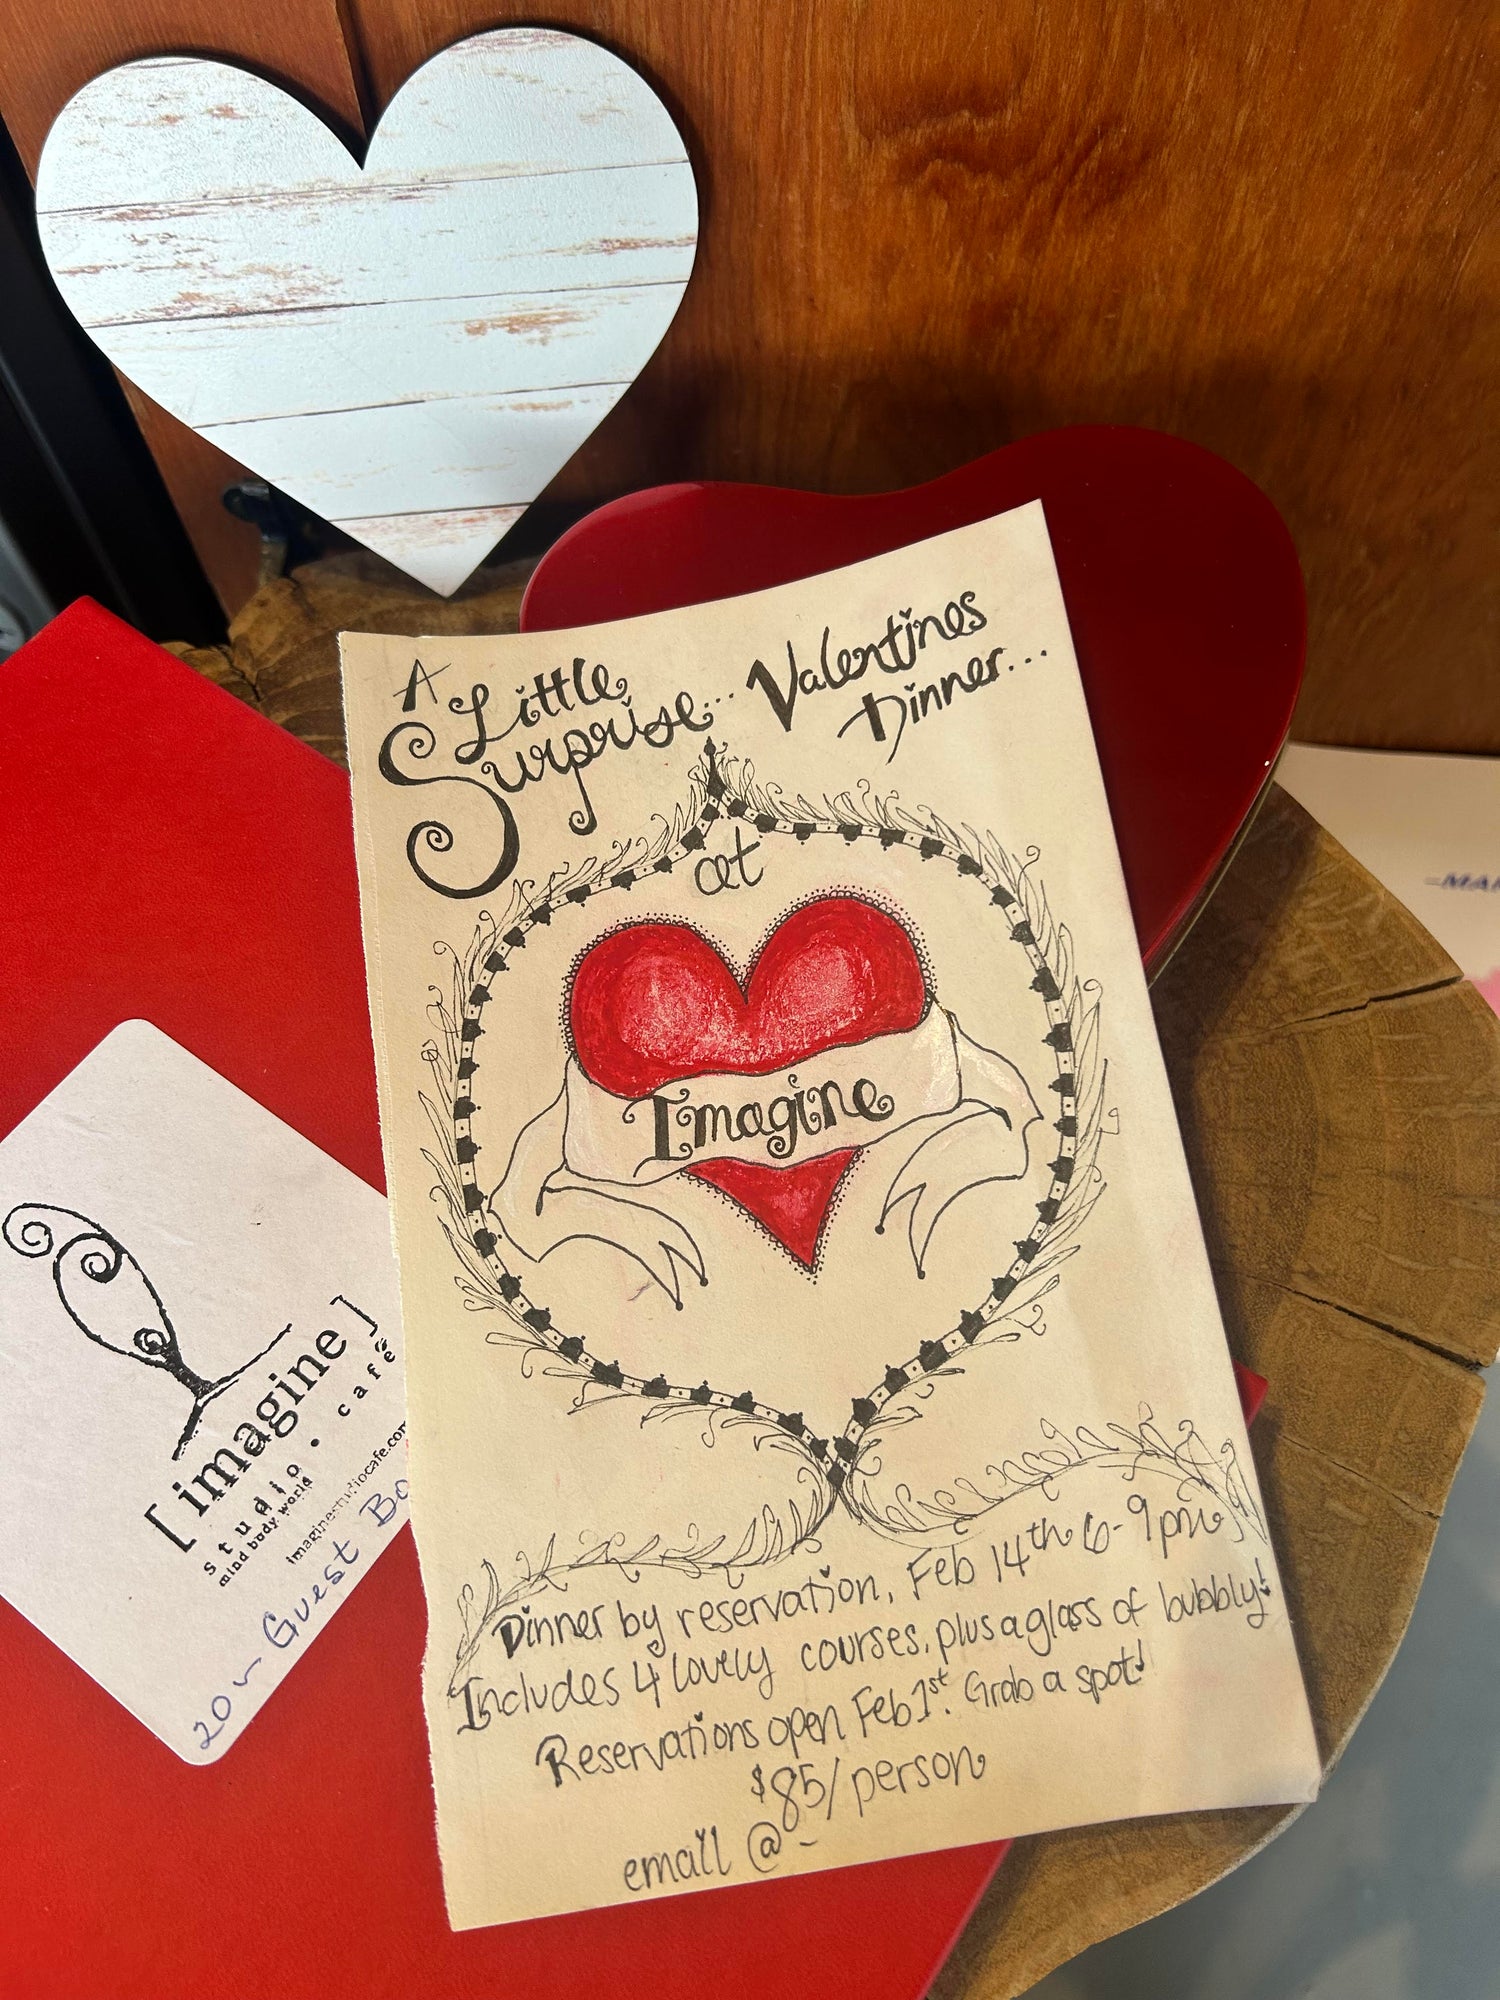 A Little
Surprise... Valentines
Dinner...
at
Imagine
Dinner by reservation, Feb 14th 6-9pm
Includes 4 lovely courses, plus a glass of bubbly!
Reservations open Feb 1st. Grab a spot!
$85/person
email @ -
[imagine]
studio • café
mind body world
imaginestudiocafe.com
Guest Bo
-MA